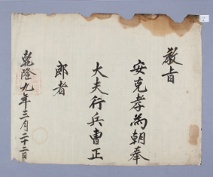 教旨
安克孝為朝奉
大夫行兵曹正
郎者
乾隆九年三月二十二日